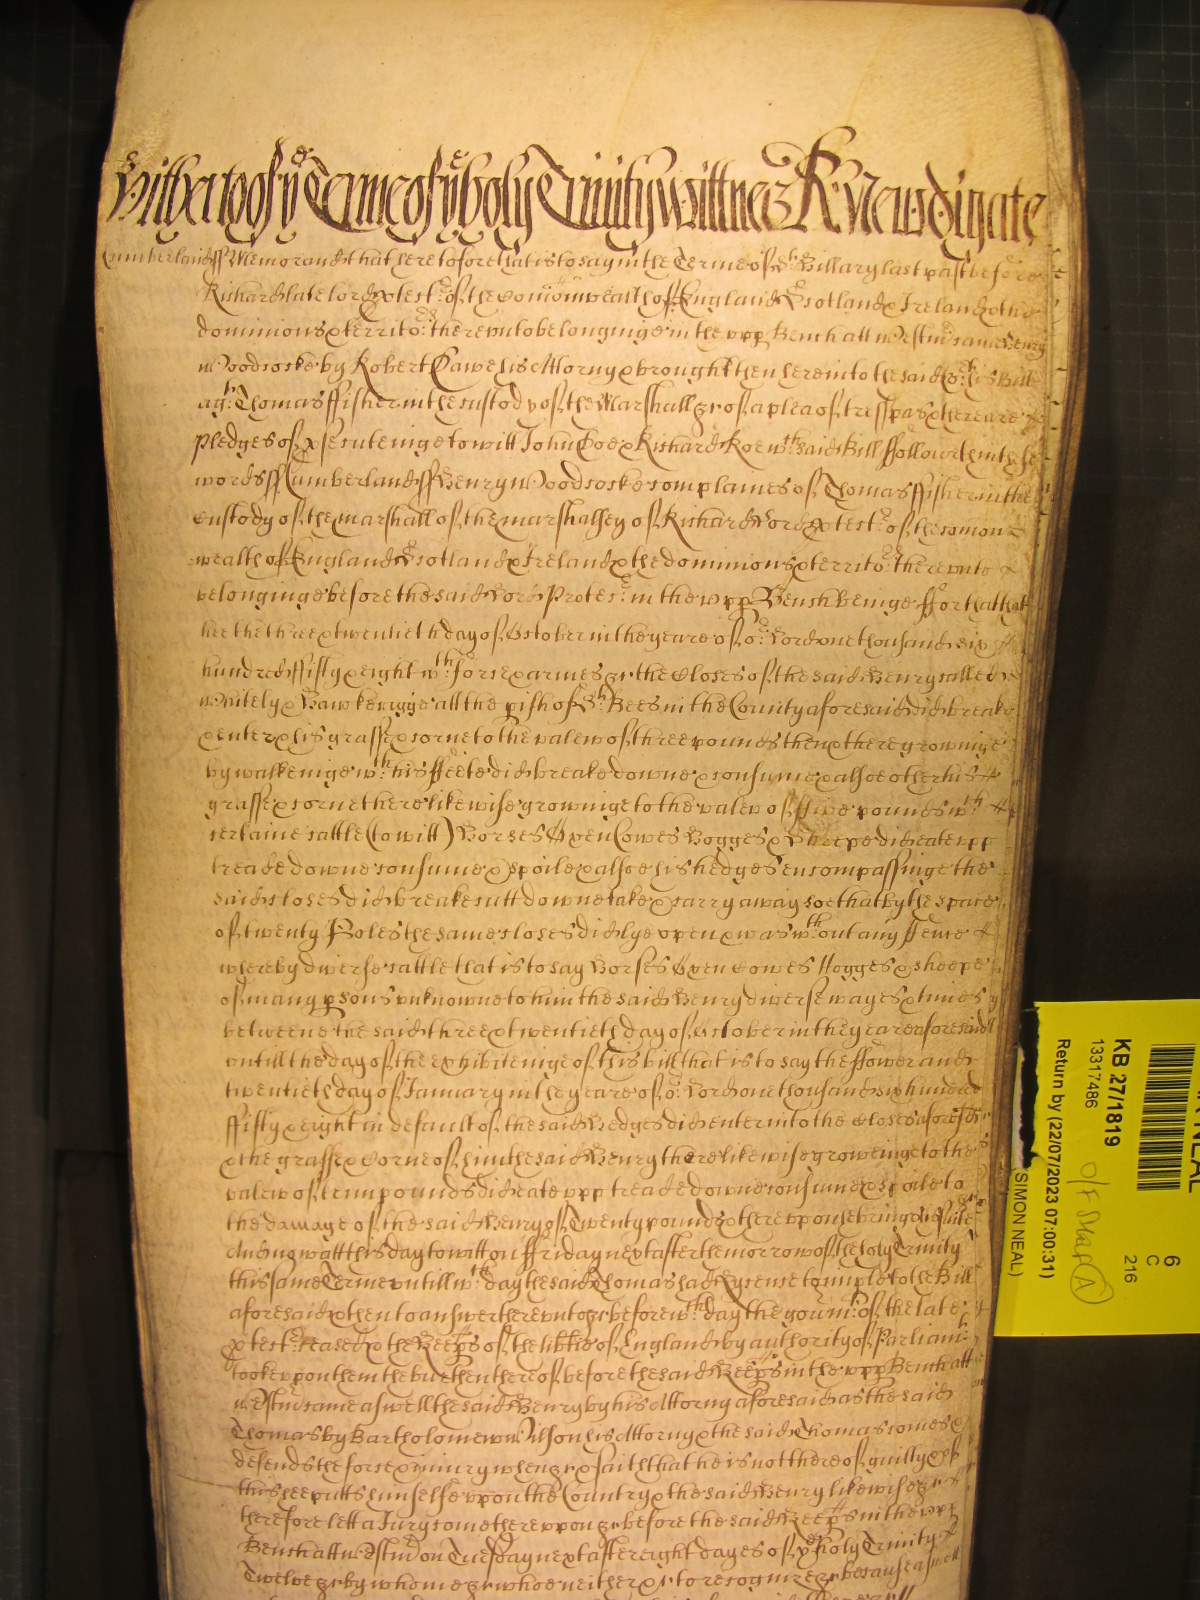 Hitherto of ye Terme of ye holy Trinity Wittnes R. Newdigate
Cumberland ss Memorand that heretofore that is to say in the Terme of St Hillary last past before
Richard late lord Protectr of the Comonwealth of England Scotland & Ireland & the
dominions & territor thereunto belonginge in the upp Bench att Westmr came Henry
Woodcocke by Robert Dawe his Attorny & brought then here into the said Cort his Bill
agt Thomas ffisher in the custody of the Marshall &c of a plea of tresspas & there are
pledges of prosecuteinge to witt John Doe & Richard Roe wch said Bill ffolloweth in these
words ss Cumberland ss Henry Woodcocke complaines of Thomas ffisher in the
custody of the marshall of the marshalsey of Richard Lord Protectr of the Comon
wealth of England Scotland & Ireland & the dominions & territor thereunto
belonginge before the said Lord Protectr in the upp Bench beinge ffor that that
hee the three & twentieth day of October in the yeare of or Lord one thousand six
hundred ffifty & eight wth force & armes &c the Closes of the said Henry called
Whitely & Hawkerigge att the pish of St Bees in the County aforesaid did breake
& enter & his grasse & corne to the valew of three pounds then & there groweinge
by walkeinge wth his ffeete did breake downe & consume & alsoe other his
grasse & corne there likewise groweinge to the valew of ffive pounds wth
certaine cattle (to witt) Horses Oxen Cowes Hogges & Sheepe did eate upp
treade downe consume & spoile & alsoe his hedges encompassinge the
said closes did breake cutt downe take & carry away soe that by the space
of twenty Poles the same closes did lye open & was wthout any ffence
whereby diverse cattle that is to say Horses Oxen Cowes Hogges & sheepe
of many psons unknowne to him the said Henry diverse wayes & times
betweene the said three & twentieth day of October in the yeare aforesaid
untill the day of the exhibiteinge of this bill that is to say the ffower and
twentieth day of January in the yeare of or Lord one thousand six hundred
ffifty & eight in default of the said hedges did enter into the Closes aforesd
& the grasse & Corne of him the said Henry there likewise groweinge to the
valew of tenn pounds did eate upp treade downe consume & spoile to
the damage of the said Henry of Twenty pounds & thereupon he bringeth suite
And now att this day to witt on ffriday next after the morrow of the holy Trinity
this same Terme untill wch day the said Thomas had lycense to imple to the Bill
aforesaid & then to answer thereunto &c before wch day the govmt of the late
Protectr ceased & the Keeps of the libtie of England by authority of Parliamt
tooke upon them the burthen thereof before the said Keeps in the upp Bench att
Westmr came aswell the said Henry by his Attorny aforesaid as the said
Thomas by Bartholomew Wilson his Attorny & the said Thomas comes &
defends the force & iniury when &c & saith that he is not thereof guilty & of
this hee putts himselfe uppon the Country & the said Henry likewise &c
therefore lett a Jury come thereuppon &c before the said Keeps in the upp
Bench att Westmr on Tuesday next after eight dayes of ye holy Trinity
Twelve &c by whome &c whoe neither &c to recognize &c because aswell
KB 27/1819
13317486
Return by (22/07/2023 07:00:31)
(SIMON NEAL)
6
C
216
NEAL
A